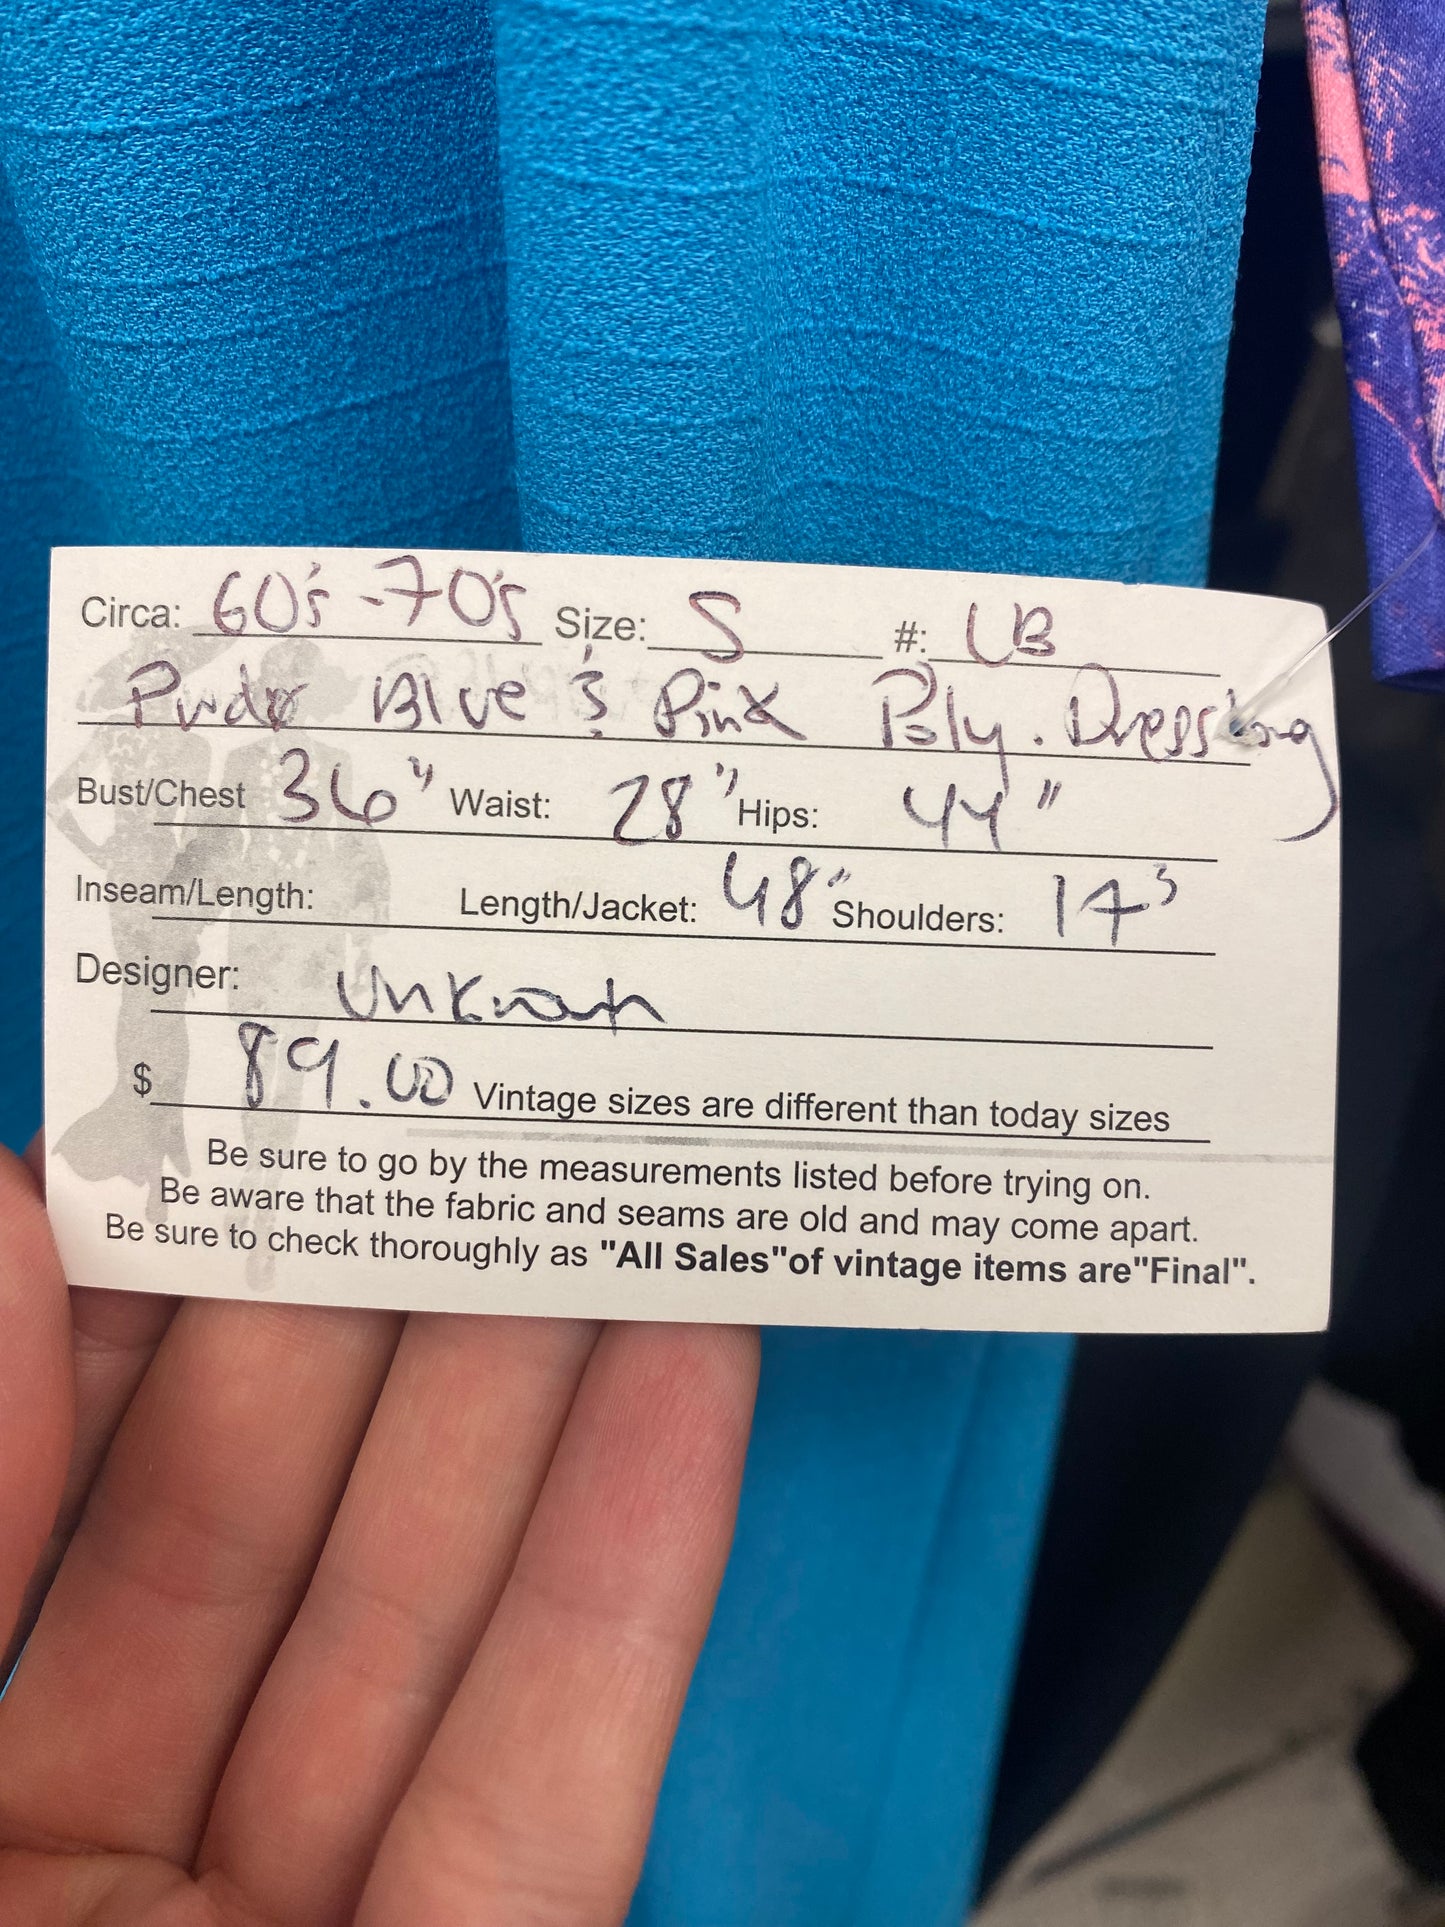 Circa: 60's-70's Size: S #: LB
Pwdr Blue & Pink Poly. Dress
Bust/Chest 36" Waist: 28" Hips: 44"
Inseam/Length: Length/Jacket: 48" Shoulders: 14³
Designer: Unknown
$ 89.00 Vintage sizes are different than today sizes
Be sure to go by the measurements listed before trying on.
Be aware that the fabric and seams are old and may come apart.
Be sure to check thoroughly as "All Sales"of vintage items are"Final".